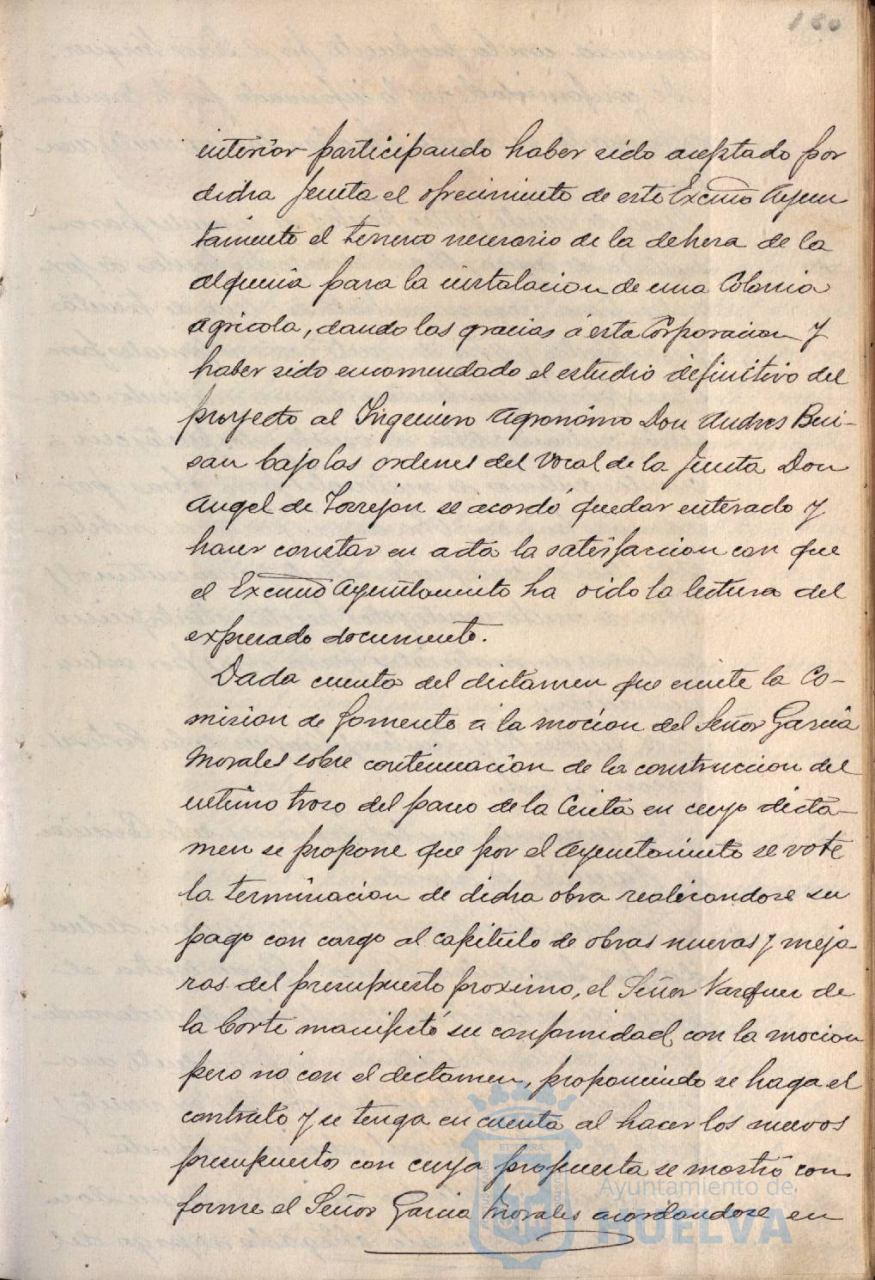 180
interior participando haber sido aceptado por
dicha Junta el ofrecimiento de este Excmo Ayun
tamiento el terreno necesario de la dehesa de la
alqueria para la instalacion de una Colonia
agricola, dando las gracias á esta Corporacion y
haber sido encomendado el estudio definitivo del
proyecto al Ingeniero Agronómo Don Andres Bui-
san bajo las ordenes del Vocal de la Junta Don
Angel de Torrejon se acordó quedar enterado y
hacer constar en acta la satisfaccion con que
el Excmo Ayuntamiento ha oido la lectura del
expresado documento.
Dada cuenta del dictamen que emite la Co-
mision de fomento á la mocion del Señor Garcia
Morales sobre continuacion de la construccion del
ultimo trozo del paseo de la Cinta en cuyo dicta-
men se propone que por el Ayuntamiento se vote
la terminacion de dicha obra realizandose su
pago con cargo al capitulo de obras nuevas y mejo-
ras del presupuesto proximo, el Señor Vazquez de
la Corte manifestó su conformidad con la mocion
pero nó con el dictamen, proponiendo se haga el
contrato y se tenga en cuenta al hacer los nuevos
presupuestos con cuya propuesta se mostró con
forme el Señor Garcia Morales acordandose en
Ayuntamiento de
HUELVA